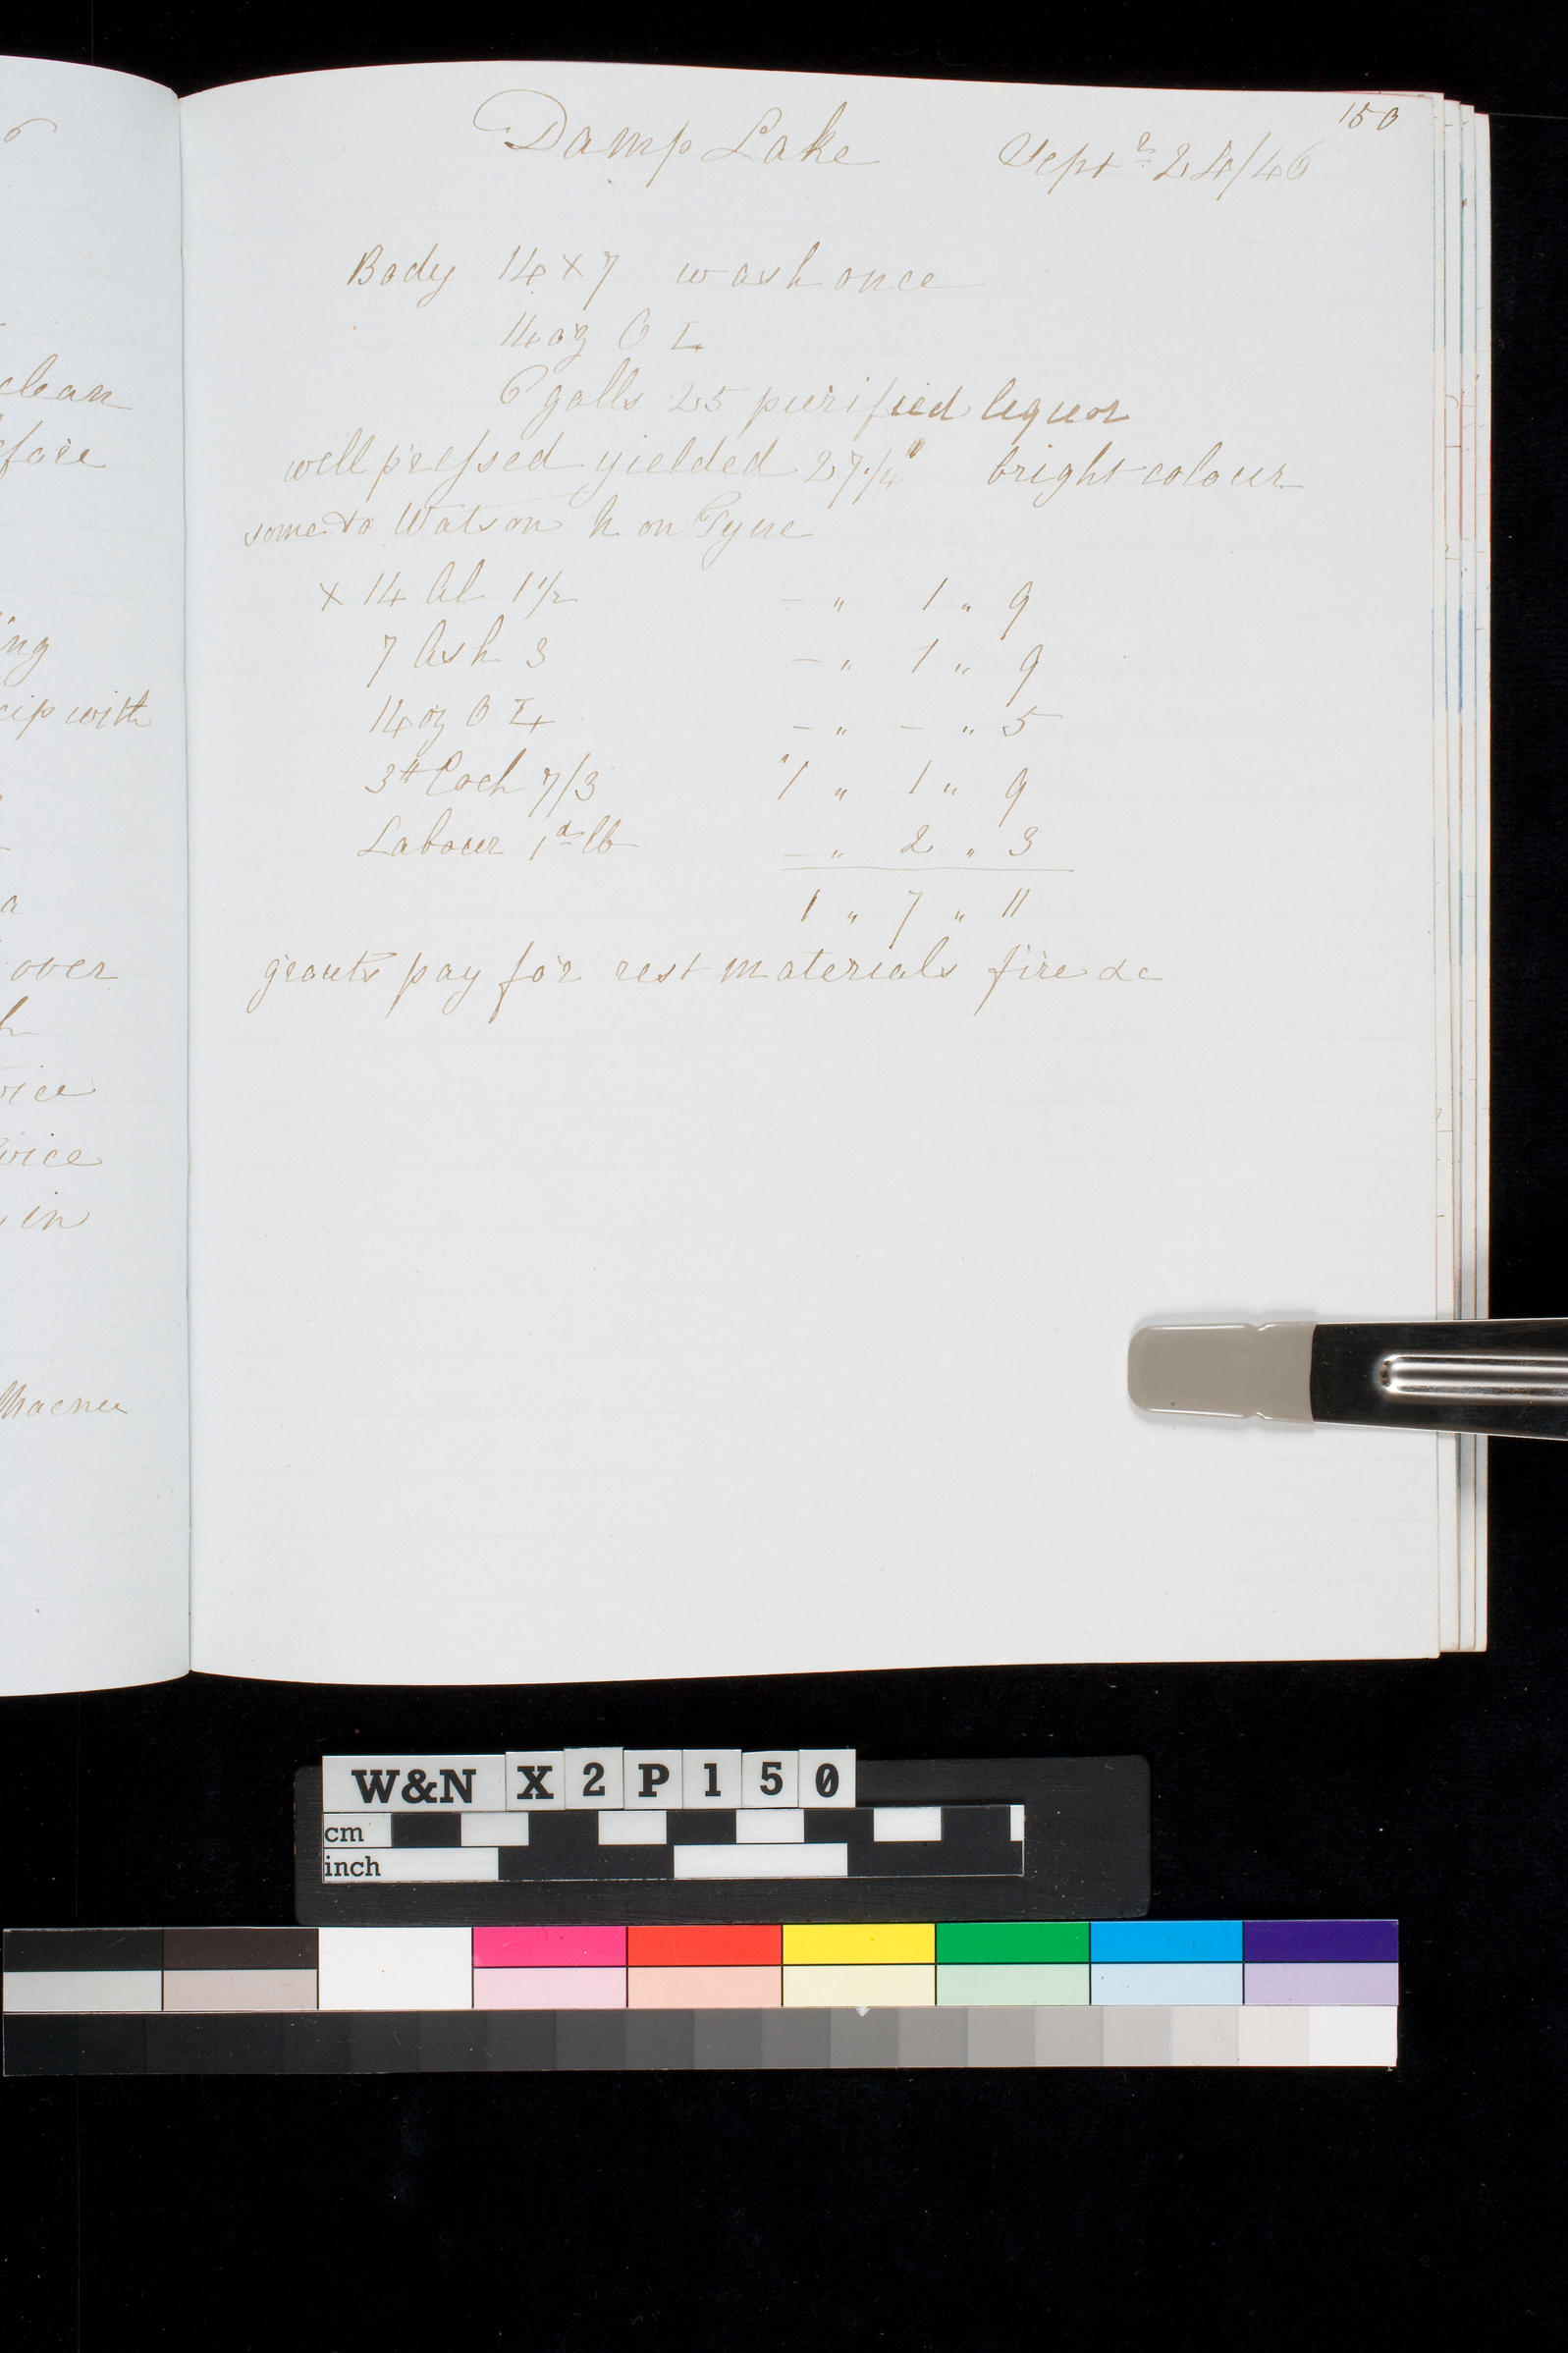 6
clean
fore
ing
cip with
a
over
h
vice
wice
in
Macnee
150
Damp Lake Septr 24/46
Body 14 x 7 wash once
14 oz O L
6 galls 25 purified liquor
well pressed yielded 27 1/4 " bright colour
some to Watson N on Tyne
x 14 Al 1 1/2 – " 1 " 9
7 Ash 3 – " 1 " 9
14 oz O L – " – " 5
3 # Coch 7/3 " 1 " 1 " 9
Labour 1d lb – " 2 " 3
1 " 7 " 11
grouts pay for rest materials fire &c
W&N X2P150
cm
inch